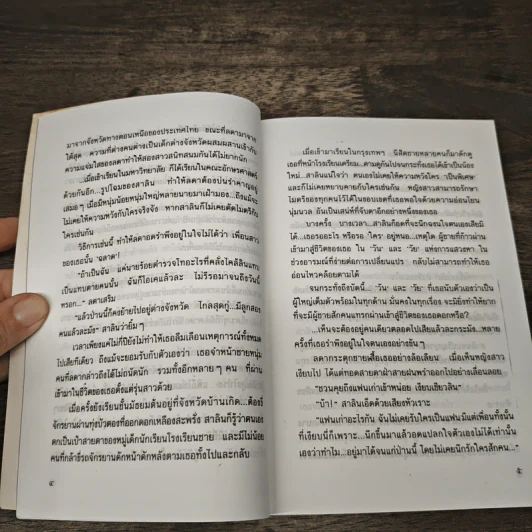 มาจากจังหวัดทางตอนเหนือของประเทศไทย ขณะที่ลดามาจาก
ใต้สุด ความที่ต่างคนต่างเป็นเด็กต่างจังหวัดผสมผสานเข้ากับ
ความแจ่มใสของลดาทำให้สองสาวสนิทสนมกันได้ไม่ยากนัก
เมื่อเข้าเรียนในมหาวิทยาลัย ก็ได้เรียนในคณะอักษรศาสตร์
ด้วยกันอีก...รูปโฉมของสาลิน ทำให้ลดาต้องบ่นรำคาญอยู่
เสมอๆ เมื่อมีหนุ่มน้อยหนุ่มใหญ่หลายนายมาเฝ้ามอง...ถึงแม้จะ
ไม่เคยให้ความหวังกับใครจริงจัง หากสาลินก็ไม่เคยตัดไมตรีกับ
ใครเช่นกัน
วิธีการเช่นนี้ ทำให้ลดาอดรำพึงอยู่ในใจไม่ได้ว่า เพื่อนสาว
ของเธอนั้น 'ฉลาด'!
"ถ้าเป็นฉัน แค่นายร้อยตำรวจโทอะไรที่คลั่งไคล้สลินแทบ
เป็นแทบตายคนนั้น ฉันก็โอเคแล้วละ ไม่รีรอมาจนถึงวันนี้
หรอก..." ลดาเสริม
"แล้วป่านนี้ก็คงย้ายไปอยู่ต่างจังหวัด ไกลสุดกู่...มีลูกสอง
คนแล้วละมัง" สาลินว่ายิ้มๆ
เวลาเพียงแค่ไม่กี่ปียังไม่ทำให้เธอลืมเลือนเหตุการณ์ทั้งหมด
ไปเสียทีเดียว ถึงแม้จะยอมรับกับตัวเองว่า เธอจำหน้าชายหนุ่ม
คนที่ลดากล่าวถึงได้ไม่ถนัดนัก รวมทั้งอีกหลายๆ คน ที่ผ่าน
เข้ามาในชีวิตของเธอตั้งแต่รุ่นสาวด้วย
เมื่อครั้งยังเรียนชั้นมัธยมต้นอยู่ที่จังหวัดบ้านเกิด...ต้องขี่
จักรยานผ่านทุ่งบัวตองที่ออกดอกเหลืองสะพรั่ง สาลินก็รู้ว่าตนเอง
ตกเป็นเป้าสายตาของหมู่เด็กนักเรียนโรงเรียนชาย และมีไม่น้อย
คนที่กล้าขี่รถจักรยานดักหน้าดักหลังตามเธอทั้งไปและกลับ
๔
เมื่อเข้ามาเรียนในกรุงเทพฯ นิสิตชายหลายคนก็มาดักดู
เธอที่หน้าโรงเรียนเตรียม...ตามดูกันไปจนกระทั่งเธอได้เข้าเป็นน้อง
ใหม่...สาลินแน่ใจว่า ตนเองไม่เคยให้ความหวังใครๆ เป็นพิเศษ
และก็ไม่เคยหยาบคายกับใครเช่นกัน หญิงสาวสามารถรักษา
ไมตรีของทุกคนไว้ได้ในขอบเขตที่เธอพอใจด้วยความอ่อนโยน
นุ่มนวล อันเป็นเสน่ห์ที่จับตาอีกอย่างหนึ่งของเธอ
บางครั้ง บางเวลา...สาลินก็อดที่จะนึกฉงนใจตนเองเสียมิ
ได้...เธอรออะไร หรือรอ 'ใคร' อยู่หนอ...เหตุใด ผู้ชายที่ก้าวผ่าน
เข้าสู่ชีวิตของเธอ ใน 'วัน' และ 'วัย' แห่งการแสวงหา ใน
ช่วงอารมณ์ที่ง่ายต่อการเปลี่ยนแปร กลับไม่สามารถทำให้เธอ
อ่อนไหวคล้อยตามได้
จนกระทั่งถึงบัดนี้ 'วัน' และ 'วัย' ที่เธอนับตัวเองว่าเป็น
ผู้ใหญ่เต็มตัวพร้อมในทุกด้าน มั่นคงในทุกเรื่อง จะมียิ่งทำให้ยาก
ที่จะมีผู้ชายสักคนแทรกผ่านเข้าสู่ชีวิตของเธอดอกหรือ?
...เห็นจะต้องอยู่คนเดียวตลอดไปเสียแล้วละกระมัง...หลาย
ครั้งที่เธอรำพึงอยู่ในใจตนเองอย่างขันๆ
ลดากระตุกชายเสื้อเธออย่างล้อเลียน เมื่อเห็นหญิงสาว
เงียบไป ได้แต่ทอดสายตาฝ่าสายฝนพร่าออกไปอย่างเลื่อนลอย
"ชวนคุยถึงแฟนเก่าเข้าหน่อย เงียบเชียวลิน"
"บ้า!" สาลินเอ็ดด้วยเสียงหัวเราะ
"แฟนเก่าอะไรกัน ฉันไม่เคยรับใครเป็นแฟนมีแต่เพื่อนทั้งนั้น
ที่เงียบนี่ก็เพราะ...นึกขึ้นมาแล้วอดแปลกใจตัวเองไม่ได้เท่านั้น
เองว่าทำไม...อยู่มาได้จนแก่ป่านนี้ โดยไม่เคยนึกรักใครสักคน..."
๕